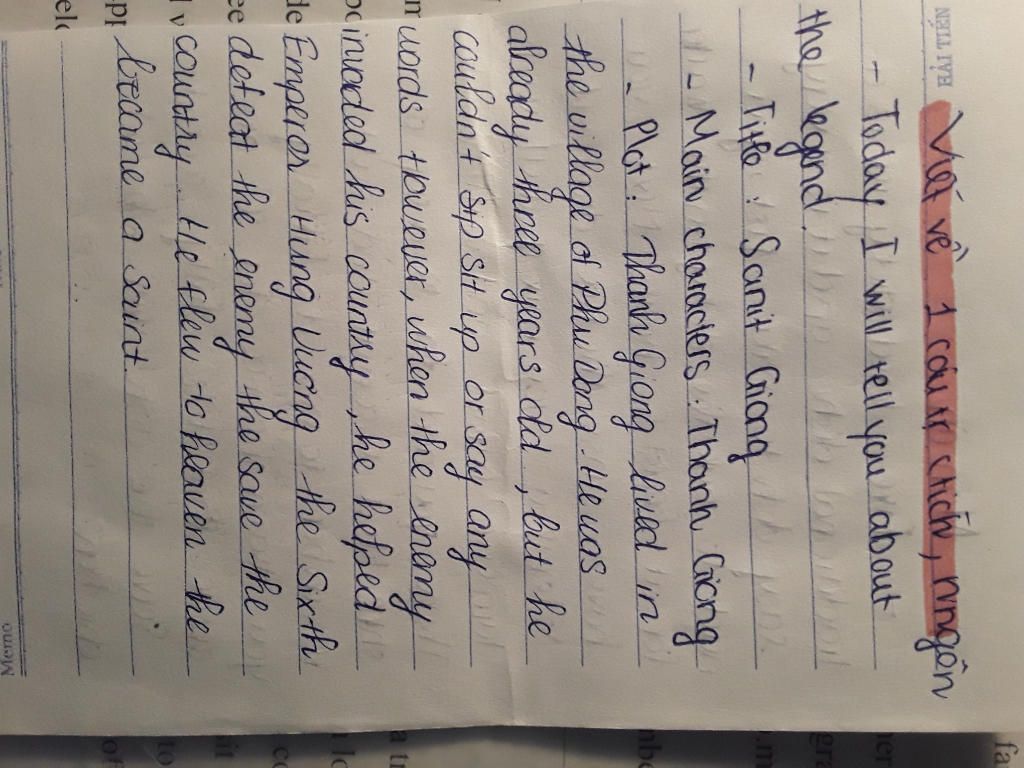 HẢI TIẾN
Viết về 1 câu tr chích, nngôn
- Today I will tell you about
the legend.
- Title : Sanit Giong
- Main characters : Thanh Giong
- Plot : Thanh Giong lived in
the village of Phu Dong. He was
already three years old, but he
couldn't sip sit up or say any
words. However, when the enemy
invaded his country, he helped
Emperor Hung Vuong the Sixth
defeat the enemy the save the
country. He flew to heaven the
become a Saint.
Memo